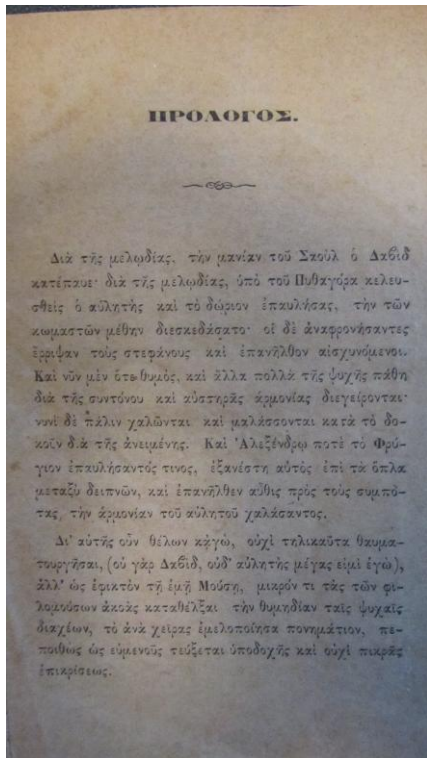 ΠΡΟΛΟΓΟΣ.
Διὰ τῆς μελῳδίας, τὴν μανίαν τοῦ Σαοὺλ ὁ Δαβὶδ
κατέπαυε· διὰ τῆς μελῳδίας, ὑπὸ τοῦ Πυθαγόρα κελευ-
σθεὶς ὁ αὐλητὴς καὶ τὸ δώριον ἐπαυλήσας, τὴν τῶν
κωμαστῶν μέθην διεσκεδάσατο· οἱ δὲ ἀναφρονήσαντες
ἔρριψαν τοὺς στεφάνους καὶ ἐπανῆλθον αἰσχυνόμενοι.
Καὶ νῦν μὲν ὅτε θυμὸς, καὶ ἄλλα πολλὰ τῆς ψυχῆς πάθη
διὰ τῆς συντόνου καὶ αὐστηρᾶς ἁρμονίας διεγείρονται·
νυνὶ δὲ πάλιν χαλῶνται καὶ μαλάσσονται κατὰ τὸ δο-
κοῦν διὰ τῆς ἀνειμένης. Καὶ Ἀλεξάνδρῳ ποτὲ τὸ Φρύ-
γιον ἐπαυλήσαντός τινος, ἐξανέστη αὐτὸς ἐπὶ τὰ ὅπλα
μεταξὺ δειπνῶν, καὶ ἐπανῆλθεν αὖθις πρὸς τοὺς συμπό-
τας, τὴν ἁρμονίαν τοῦ αὐλητοῦ χαλάσαντος.
Δι' αὐτῆς οὖν θέλων κἀγὼ, οὐχὶ τηλικαῦτα θαυμα-
τουργῆσαι, (οὐ γὰρ Δαβὶδ, οὐδ' αὐλητὴς μέγας εἰμὶ ἐγὼ),
ἀλλ' ὡς ἐφικτὸν τῇ ἐμῇ Μούσῃ, μικρόν τι τὰς τῶν φι-
λομούσων ἀκοὰς καταθέλξαι τὴν θυμηδίαν ταῖς ψυχαῖς
διαχέων, τὸ ἀνὰ χεῖρας ἐμελοποίησα πονημάτιον, πε-
ποιθὼς ὡς εὐμενοῦς τεύξεται ὑποδοχῆς καὶ οὐχὶ πικρᾶς
ἐπικρίσεως.